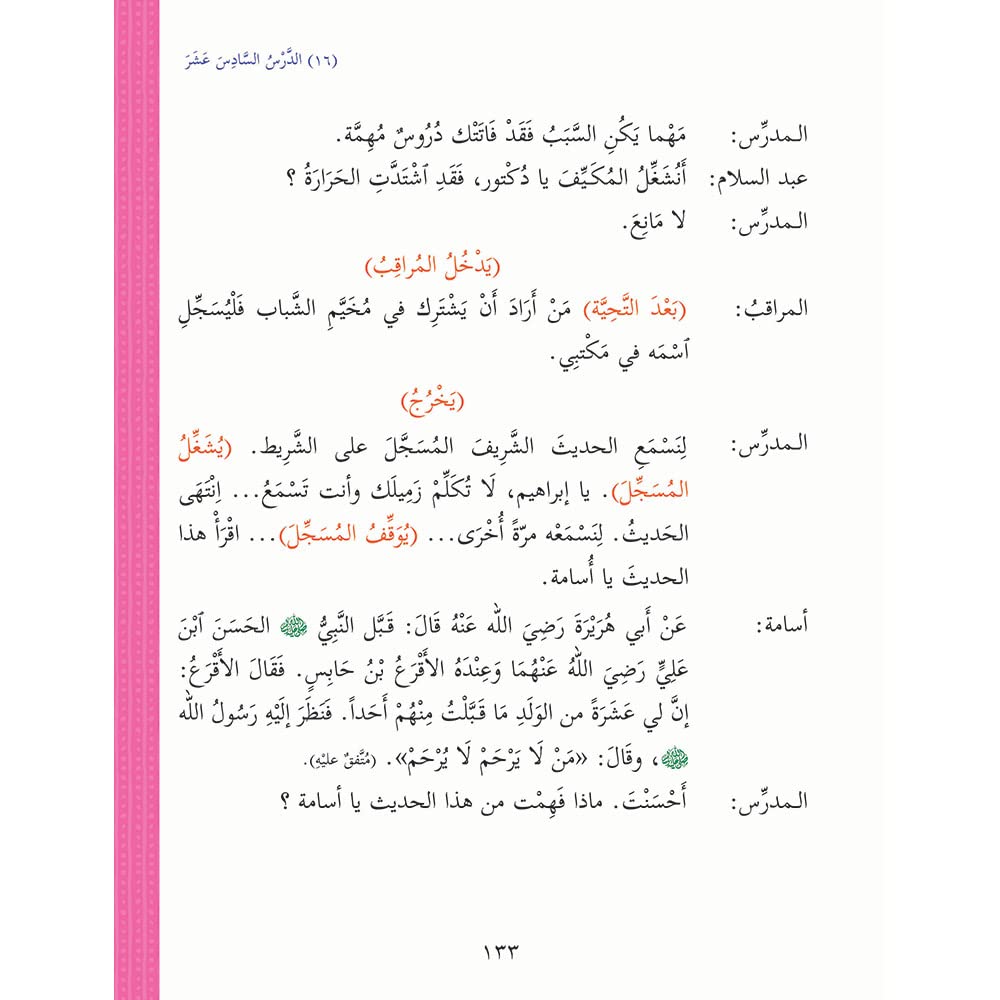 (١٦) الدَّرْسُ السَّادِسَ عَشَرَ
المدرِّس: مَهْما يَكُنِ السَّبَبُ فَقَدْ فَاتَتْك دُرُوسٌ مُهِمَّة.
عبد السلام: أَنُشَغِّلُ المُكَيِّفَ يا دُكْتور، فَقَدِ ٱشْتَدَّتِ الحَرَارَةُ ؟
المدرِّس: لا مَانِعَ.
(يَدْخُلُ المُراقِبُ)
المراقبُ: (بَعْدَ التَّحِيَّة) مَنْ أَرَادَ أَنْ يَشْتَرِك في مُخَيَّمِ الشَّباب فَلْيُسَجِّلِ
ٱسْمَه في مَكْتبِي.
(يَخْرُجُ)
المدرِّس: لِنَسْمَعِ الحديثَ الشَّرِيفَ المُسَجَّلَ على الشَّرِيط. (يُشَغِّلُ
المُسَجِّلَ). يا إبراهيم، لَا تُكَلِّمْ زَمِيلَك وأنت تَسْمَعُ... اِنْتَهَى
الحَديثُ. لِنَسْمَعْه مرّةً أُخْرَى... (يُوَقِّفُ المُسَجِّلَ)... اقْرَأْ هذا
الحديثَ يا أُسامة.
أسامة: عَنْ أَبي هُرَيْرَةَ رَضِيَ الله عَنْهُ قَالَ: قَبَّل النَّبِيُّ ﷺ الحَسَنَ ٱبْنَ
عَلِيٍّ رَضِيَ اللهُ عَنْهُمَا وَعِنْدَهُ الأَقْرَعُ بْنُ حَابِسٍ. فَقَالَ الأَقْرَعُ:
إنَّ لي عَشَرَةً من الوَلَدِ مَا قَبَّلْتُ مِنْهُمْ أَحَداً. فَنَظَرَ إلَيْهِ رَسُولُ الله
ﷺ، وقَالَ: «مَنْ لَا يَرْحَمْ لَا يُرْحَمْ». (مُتَّفقٌ عليْهِ).
المدرِّس: أَحْسَنْتَ. ماذا فَهِمْت من هذا الحديث يا أسامة ؟
١٣٣